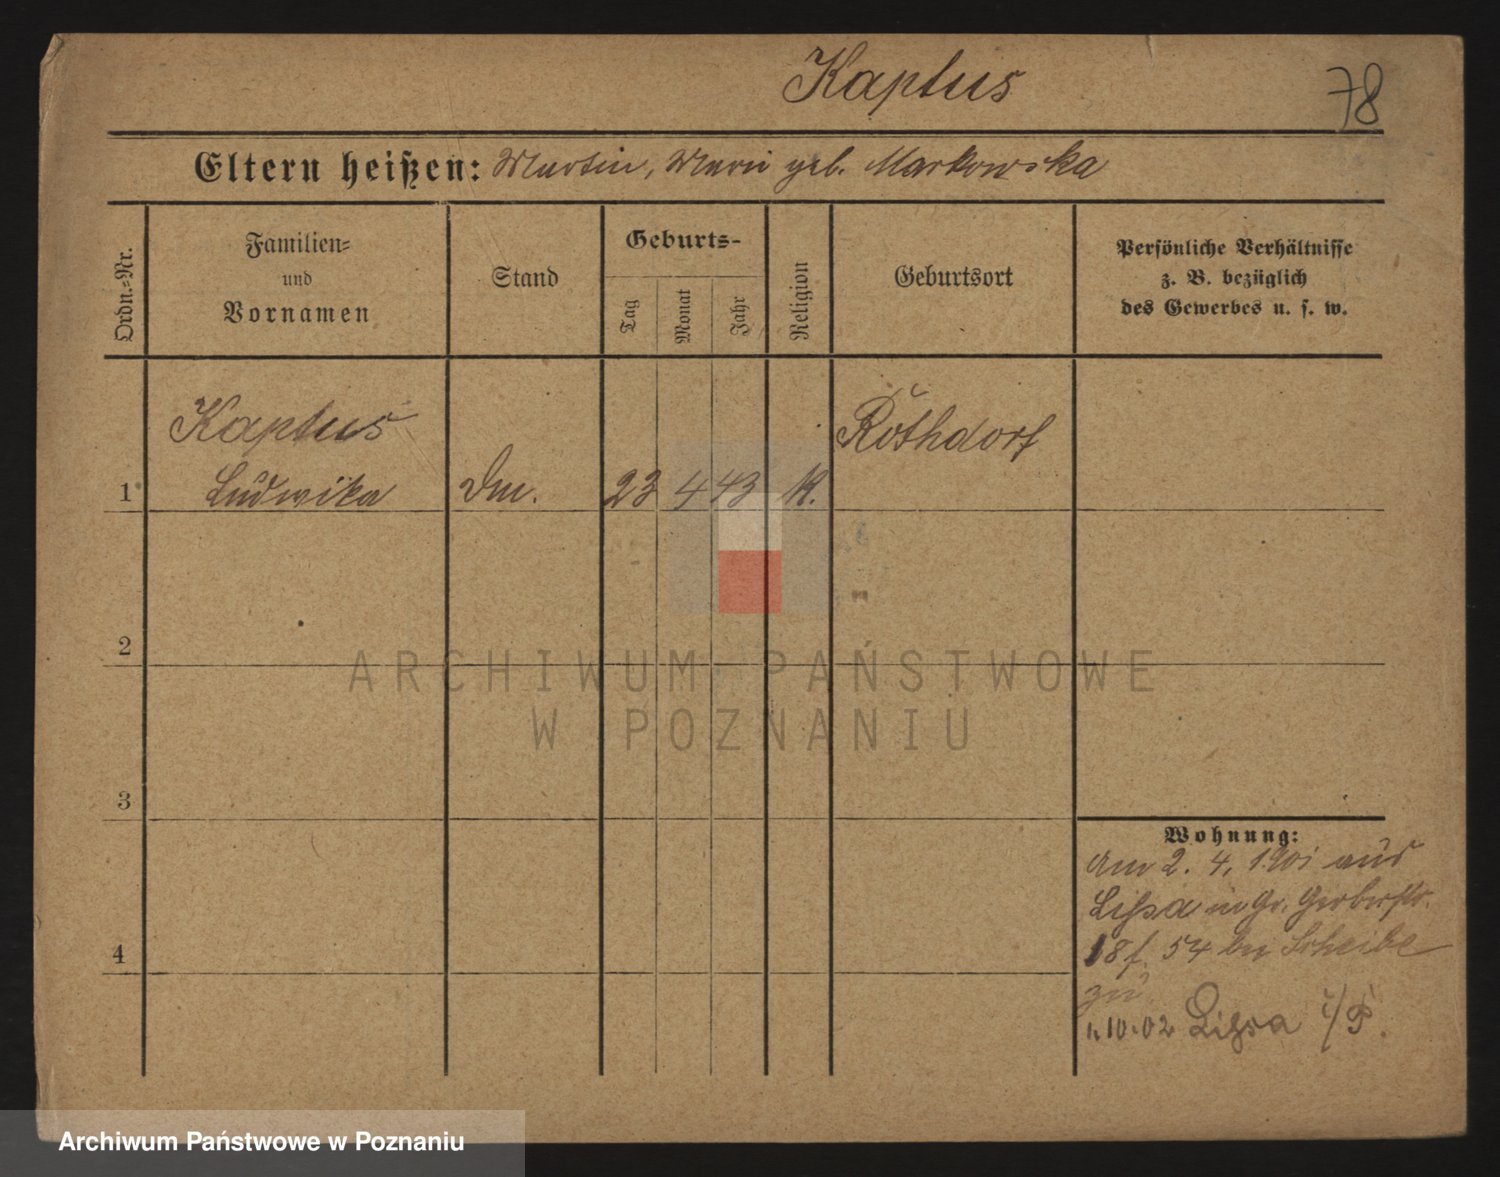 Kaptus
78
Eltern heißen: Martin, Marie geb. Markowska
Ordn.-Nr.
Familien-
und
Vornamen
Stand
Geburts-
Tag
Monat
Jahr
Religion
Geburtsort
Persönliche Verhältnisse
z. B. bezüglich
des Gewerbes u. s. w.
Kaptus
Rothdorf
1 Ludwika 23 4 43 K.
2
ARCHIWUM PAŃSTWOWE
W POZNANIU
3
Wohnung:
am 2. 4. 1901 aus
Lissa in Gr. Gerberstr.
4
18 f. 54 bei Scheibe
zu
1.10.02 Lissa i/P.
Archiwum Państwowe w Poznaniu